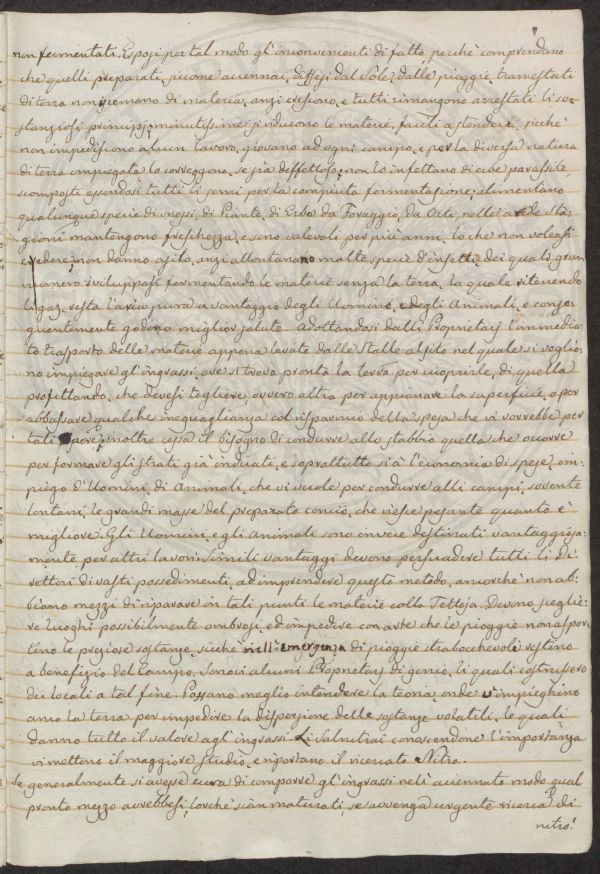 non fermentati. Esposi per tal modo gl'inconvenienti di fatto, perchè comprendano
che quelli preparati, siccome accennai, difesi dal Sole, dalle pioggie, tramestati
di terra non scemano di materia, anzi crescono, e tutti rimangono arrestati li so-
stanziosi principj; minutissime si riducono le materie, facili a stendere, sicchè
non impediscono alcun lavoro, giovano ad ogni campo, e per la diversa natura
di terra impiegata lo correggono, se sia diffettoso; non lo infettano di erbe parassite,
scomposti essendosi tutti li semi per la compiuta fermentazione; alimentano
qualunque specie di messi, di Piante, di Erbe da Foraggio, da Orti, nelle aride sta-
gioni mantengono freschezza, e sono valevoli per più anni, lo che non voleasi
credere; non danno agito, anzi allontanano molte specie d'insetti, dei quali gran
numero sviluppasi fermentando le materie senza la terra, la quale ritenendo
li gaz, resta l'aria pura a vantaggio degli Uomini, e degli Animali, e conse-
quentemente godono miglior salute. Adottandosi dalli Proprietarj l'immedia-
to trasporto delle materie appena levate dalle Stalle al sito nel quale si voglio-
no impiegare gl'ingrassi, ove si trova pronta la terra per cuoprirle, di quella
profittando, che devesi togliere, ovvero altra per appianare la superficie, o per
abbassare qualche ineguaglianza col risparmio della spesa che vi vorrebbe per
tali opere; inoltre cessa il bisogno di condurre allo stabbio quella che occorre
per formare gli strati già indicati, e soprattutto si à l'economia di spese, im-
piego d'Uomini, di Animali, che vi vuole per condurre alli campi, sovente
lontani, le grandi masse del preparato concio, che riesce pesante quanto è
migliore. Gli Uomini, e gli Animali sono invece destinati vantaggiosa-
mente per altri lavori. Simili vantaggi devono persuadere tutti li Di-
rettori di vasti possedimenti, ad imprendere questo metodo, ancorchè non ab-
biano mezzi di riparare in tali punti le materie collo Tettoja. Devono sceglie-
re luoghi possibilmente ombrosi, ed impedire con arte che le pioggie non aspor-
tino le preziose sostanze, sicchè nell'emergenza di pioggie strabocchevoli restino
a benefizio del Campo. Sonovi alcuni Proprietarj di genio, li quali costrussero
dei locali a tal fine. Possano meglio intendere la teoria, onde v'impieghino
anno la terra per impedire la dispersione delle sostanze volatili, le quali
danno tutto il valore agl'ingrassi. Li Salnitrai conoscendone l'importanza
vi mettono il maggiore studio, e riportano il ricercato Nitro.
Se generalmente si avesse cura di comporre gl'ingrassi nell'accennato modo qual
pronto mezzo avrebbesi, lorchè sian maturati, se avvenga urgente ricerca di
nitro!